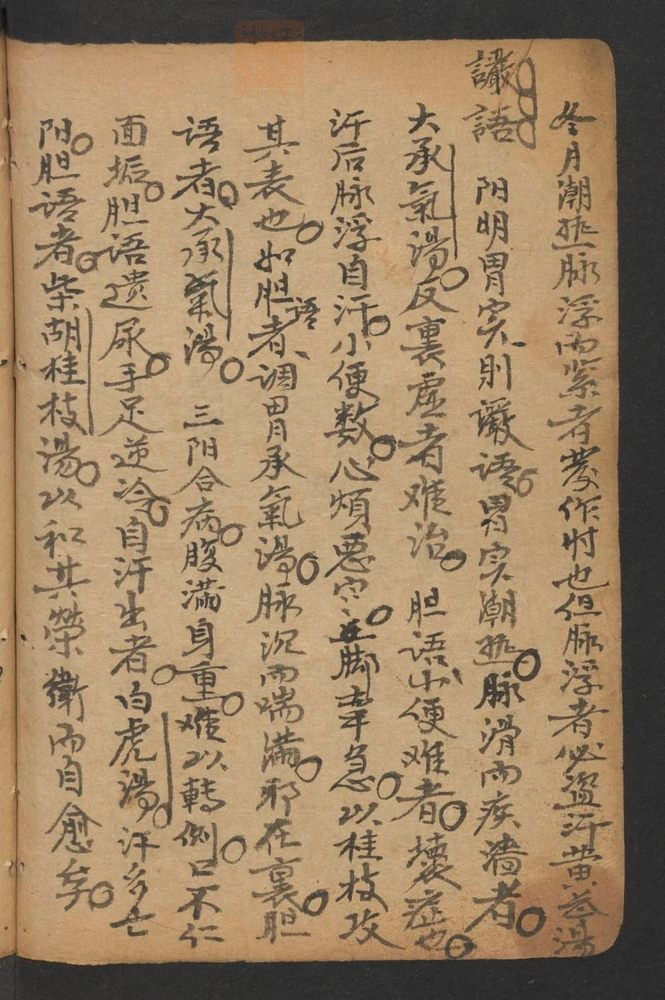 冬月潮热脉浮而紧者發作时也但脉浮者必盗汗黄芩湯
讝語 阳明胃实則讝語胃实潮热脉滑而疾濇者
大承氣湯反裏虚者难治 胆語小便难者壞症也
汗后脉浮自汗小便数心煩恶寒脚挛急以桂枝攻
其表也如胆語者調胃承氣湯脉沉而喘满邪在裏胆
语者大承氣湯 三阳合病腹满身重难以轉側口不仁
面垢胆语遗尿手足逆冷自汗出者白虎湯汗多亡
阳胆语者柴胡桂枝湯以和其榮衛而自愈矣